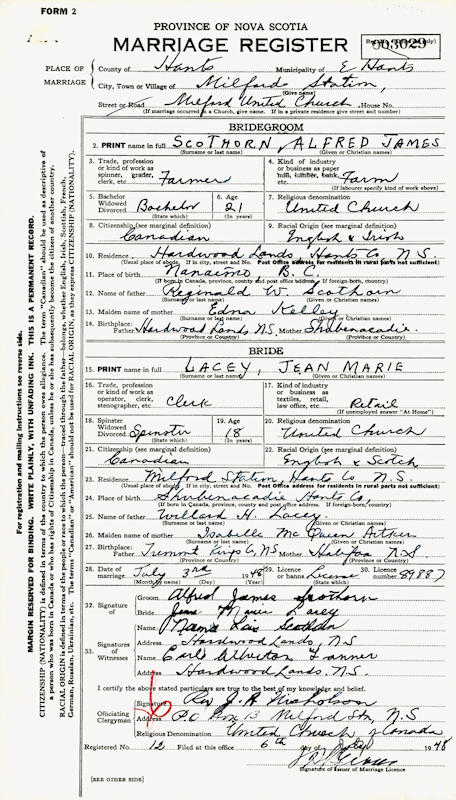 FORM 2
PROVINCE OF NOVA SCOTIA
MARRIAGE REGISTER
003029
PLACE OF MARRIAGE
County of Hants Municipality of E Hants
City, Town or Village of Milford Station,
(Give name)
Street or Road Milford United Church, House No.
(If marriage occurred in a Church, give name. If in a private residence give street and number)
BRIDEGROOM
2. PRINT name in full SCOTHORN, ALFRED JAMES
(Surname or last name) (Given or Christian names)
3. Trade, profession or kind of work as spinner, grader, clerk, etc. Farmer
4. Kind of industry or business as paper mill, lumber, bank, etc. Farm
(If labourer specify kind of work above)
5. Bachelor Widowed Divorced Bachelor
(State which)
6. Age 21
(In years)
7. Religious denomination
United Church
8. Citizenship (see marginal definition)
Canadian
9. Racial origin (see marginal definition)
English & Irish
10. Residence Hardwood Lands Hants Co N.S.
(Usual place of abode. If in city, street and No. Post Office address for residents in rural parts not sufficient)
11. Place of birth Nanaimo B.C.
(If born in Canada, province, county and post office address. If foreign-born, country)
12. Name of father Reginald W. Scothorn
(Surname or last name) (Given or Christian names)
13. Maiden name of mother Edna Kelley
(Surname or last name) (Given or Christian names)
14. Birthplace: Father Hardwood Lands N.S. Mother Shubenacadie
(Province or Country) (Province or Country)
BRIDE
15. PRINT name in full LACEY, JEAN MARIE
(Surname or last name) (Given or Christian names)
16. Trade, profession or kind of work as operator, clerk, stenographer, etc. Clerk
17. Kind of industry or business as textiles, retail, law office, etc. Retail
(If unemployed answer "At Home")
18. Spinster Widowed Divorced Spinster
(State which)
19. Age 18
(In years)
20. Religious denomination
United Church
21. Citizenship (see marginal definition)
Canadian
22. Racial origin (see marginal definition)
English & Scotch
23. Residence Milford Station, Hants Co N.S.
(Usual place of abode. If in city, street and No. Post Office address for residents in rural parts not sufficient)
24. Place of birth Shubenacadie Hants Co
(If born in Canada, province, county and post office address. If foreign-born, country)
25. Name of father Willard H. Lacey
(Surname or last name) (Given or Christian names)
26. Maiden name of mother Isabelle McQueen Aitken
(Surname or last name) (Given or Christian names)
27. Birthplace: Father Tremont Kings Co, NS Mother Halifax N.S.
(Province or Country) (Province or Country)
28. Date of marriage July 3rd 1948
(Month by name) (Day) (Year)
29. Licence or banns License
30. Licence number 89887
32. Signature of
Groom Alfred James Scothorn
Bride Jean Marie Lacey
33. Signatures of Witnesses
Name Lois Scothorn
Address Hardwood Lands, N.S
Name Earl Alberton Fanner
Address Hardwood Lands. N.S.
I certify the above stated particulars are true to the best of my knowledge and belief.
Officiating Clergyman
Signature Rev J. A. Nicholson
Address P.O Box 13 Milford Stn, N.S
Religious Denomination United Church of Canada
Registered No. 12 Filed at this office 6th day of July 1948
Signature of Issuer of Marriage Licence
[SEE OTHER SIDE]
For registration and mailing instructions see reverse side.
MARGIN RESERVED FOR BINDING. WRITE PLAINLY, WITH UNFADING INK. THIS IS A PERMANENT RECORD.